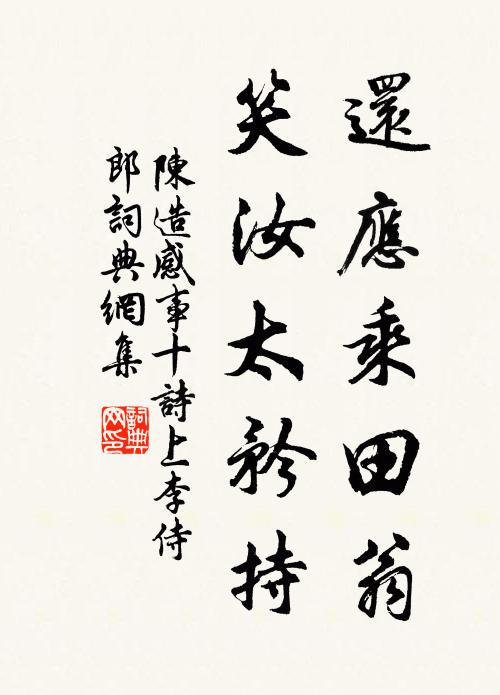 還應乘田翁
笑汝太矜持
陳造感事十詩上李侍
郎詞典網集
詞典
网印